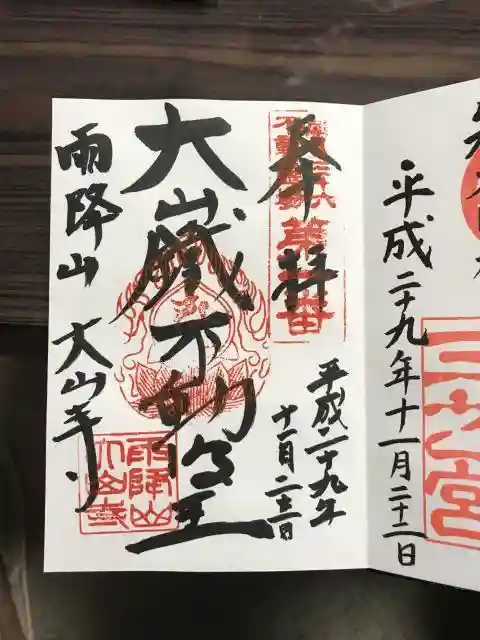 平成二十九年十一月二十二日
三之宮
奉拝
第一番
平成二十九年
十一月二十二日
大山鐵不動明王
雨降山 大山寺
雨降山
大山寺